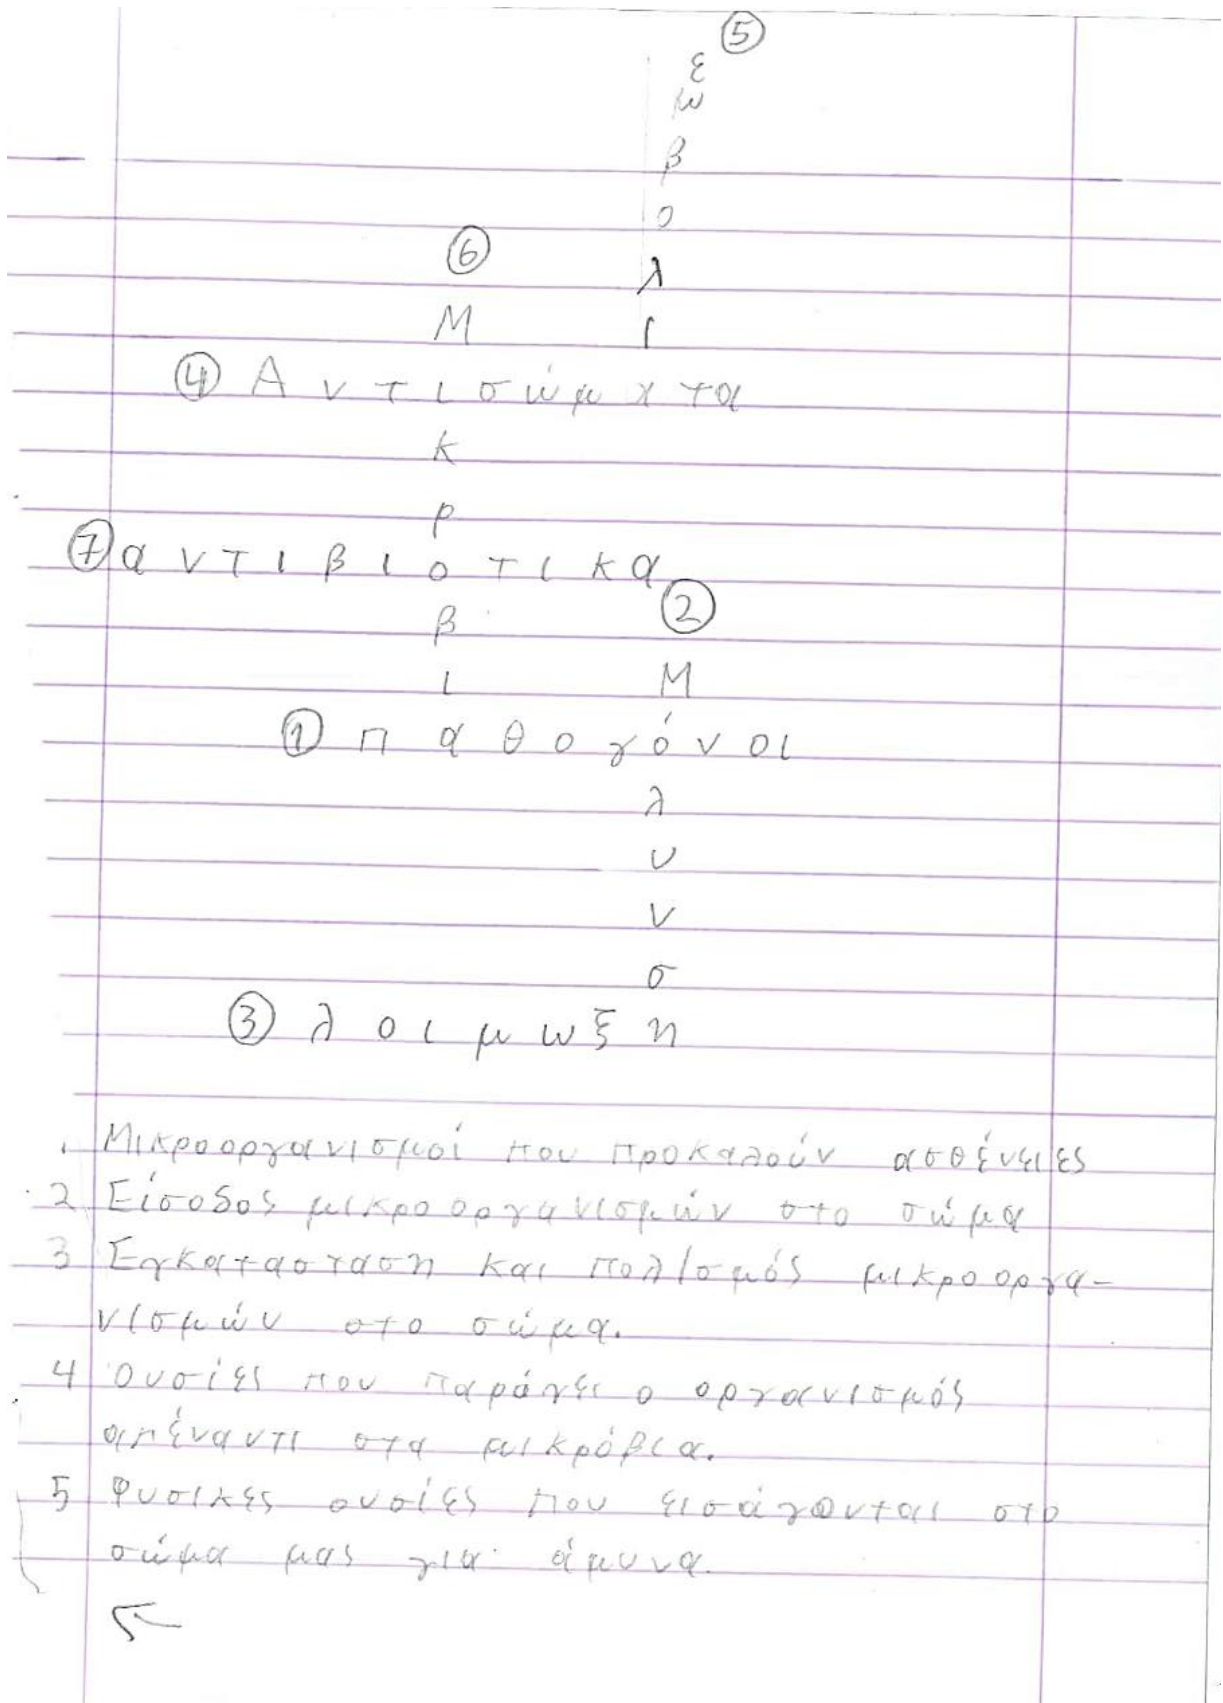 ⑤
ε
μ
β
ο
⑥ λ
Μ ι
④ Α ν τ ι σ ώ μ α τα
κ
ρ
⑦ α ν τ ι β ι ο τ ι κ α
β ②
ι Μ
① π α θ ο γ ό ν οι
λ
υ
ν
σ
③ λ ο ι μ ω ξ η
1 Μικροοργανισμοί που προκαλούν ασθένειες
2 Είσοδος μικροοργανισμών στο σώμα
3 Εγκατασταση και πολ/σμός μικροοργα-
νισμών στο σώμα.
4 Ουσίες που παράγει ο οργανισμός
απέναντι στα μικρόβια.
5 Φυσικες ουσίες που εισάγονται στο
σώμα μας για άμυνα.
←